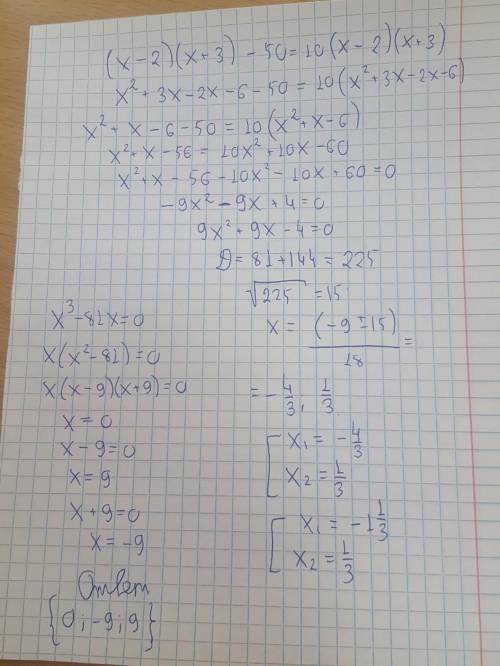 (x-2)(x+3) - 50 = 10(x-2)(x+3)
x² + 3x - 2x - 6 - 50 = 10(x² + 3x - 2x - 6)
x² + x - 6 - 50 = 10(x² + x - 6)
x² + x - 56 = 10x² + 10x - 60
x² + x - 56 - 10x² - 10x + 60 = 0
-9x² - 9x + 4 = 0
9x² + 9x - 4 = 0
D = 81 + 144 = 225
√225 = 15
x = (-9 ± 15)/18 =
= -4/3, 1/3
[ x₁ = -4/3
x₂ = 1/3
[ x₁ = -1 1/3
x₂ = 1/3
x³ - 81x = 0
x(x² - 81) = 0
x(x-9)(x+9) = 0
x = 0
x - 9 = 0
x = 9
x + 9 = 0
x = -9
Ответ
{0; -9; 9}